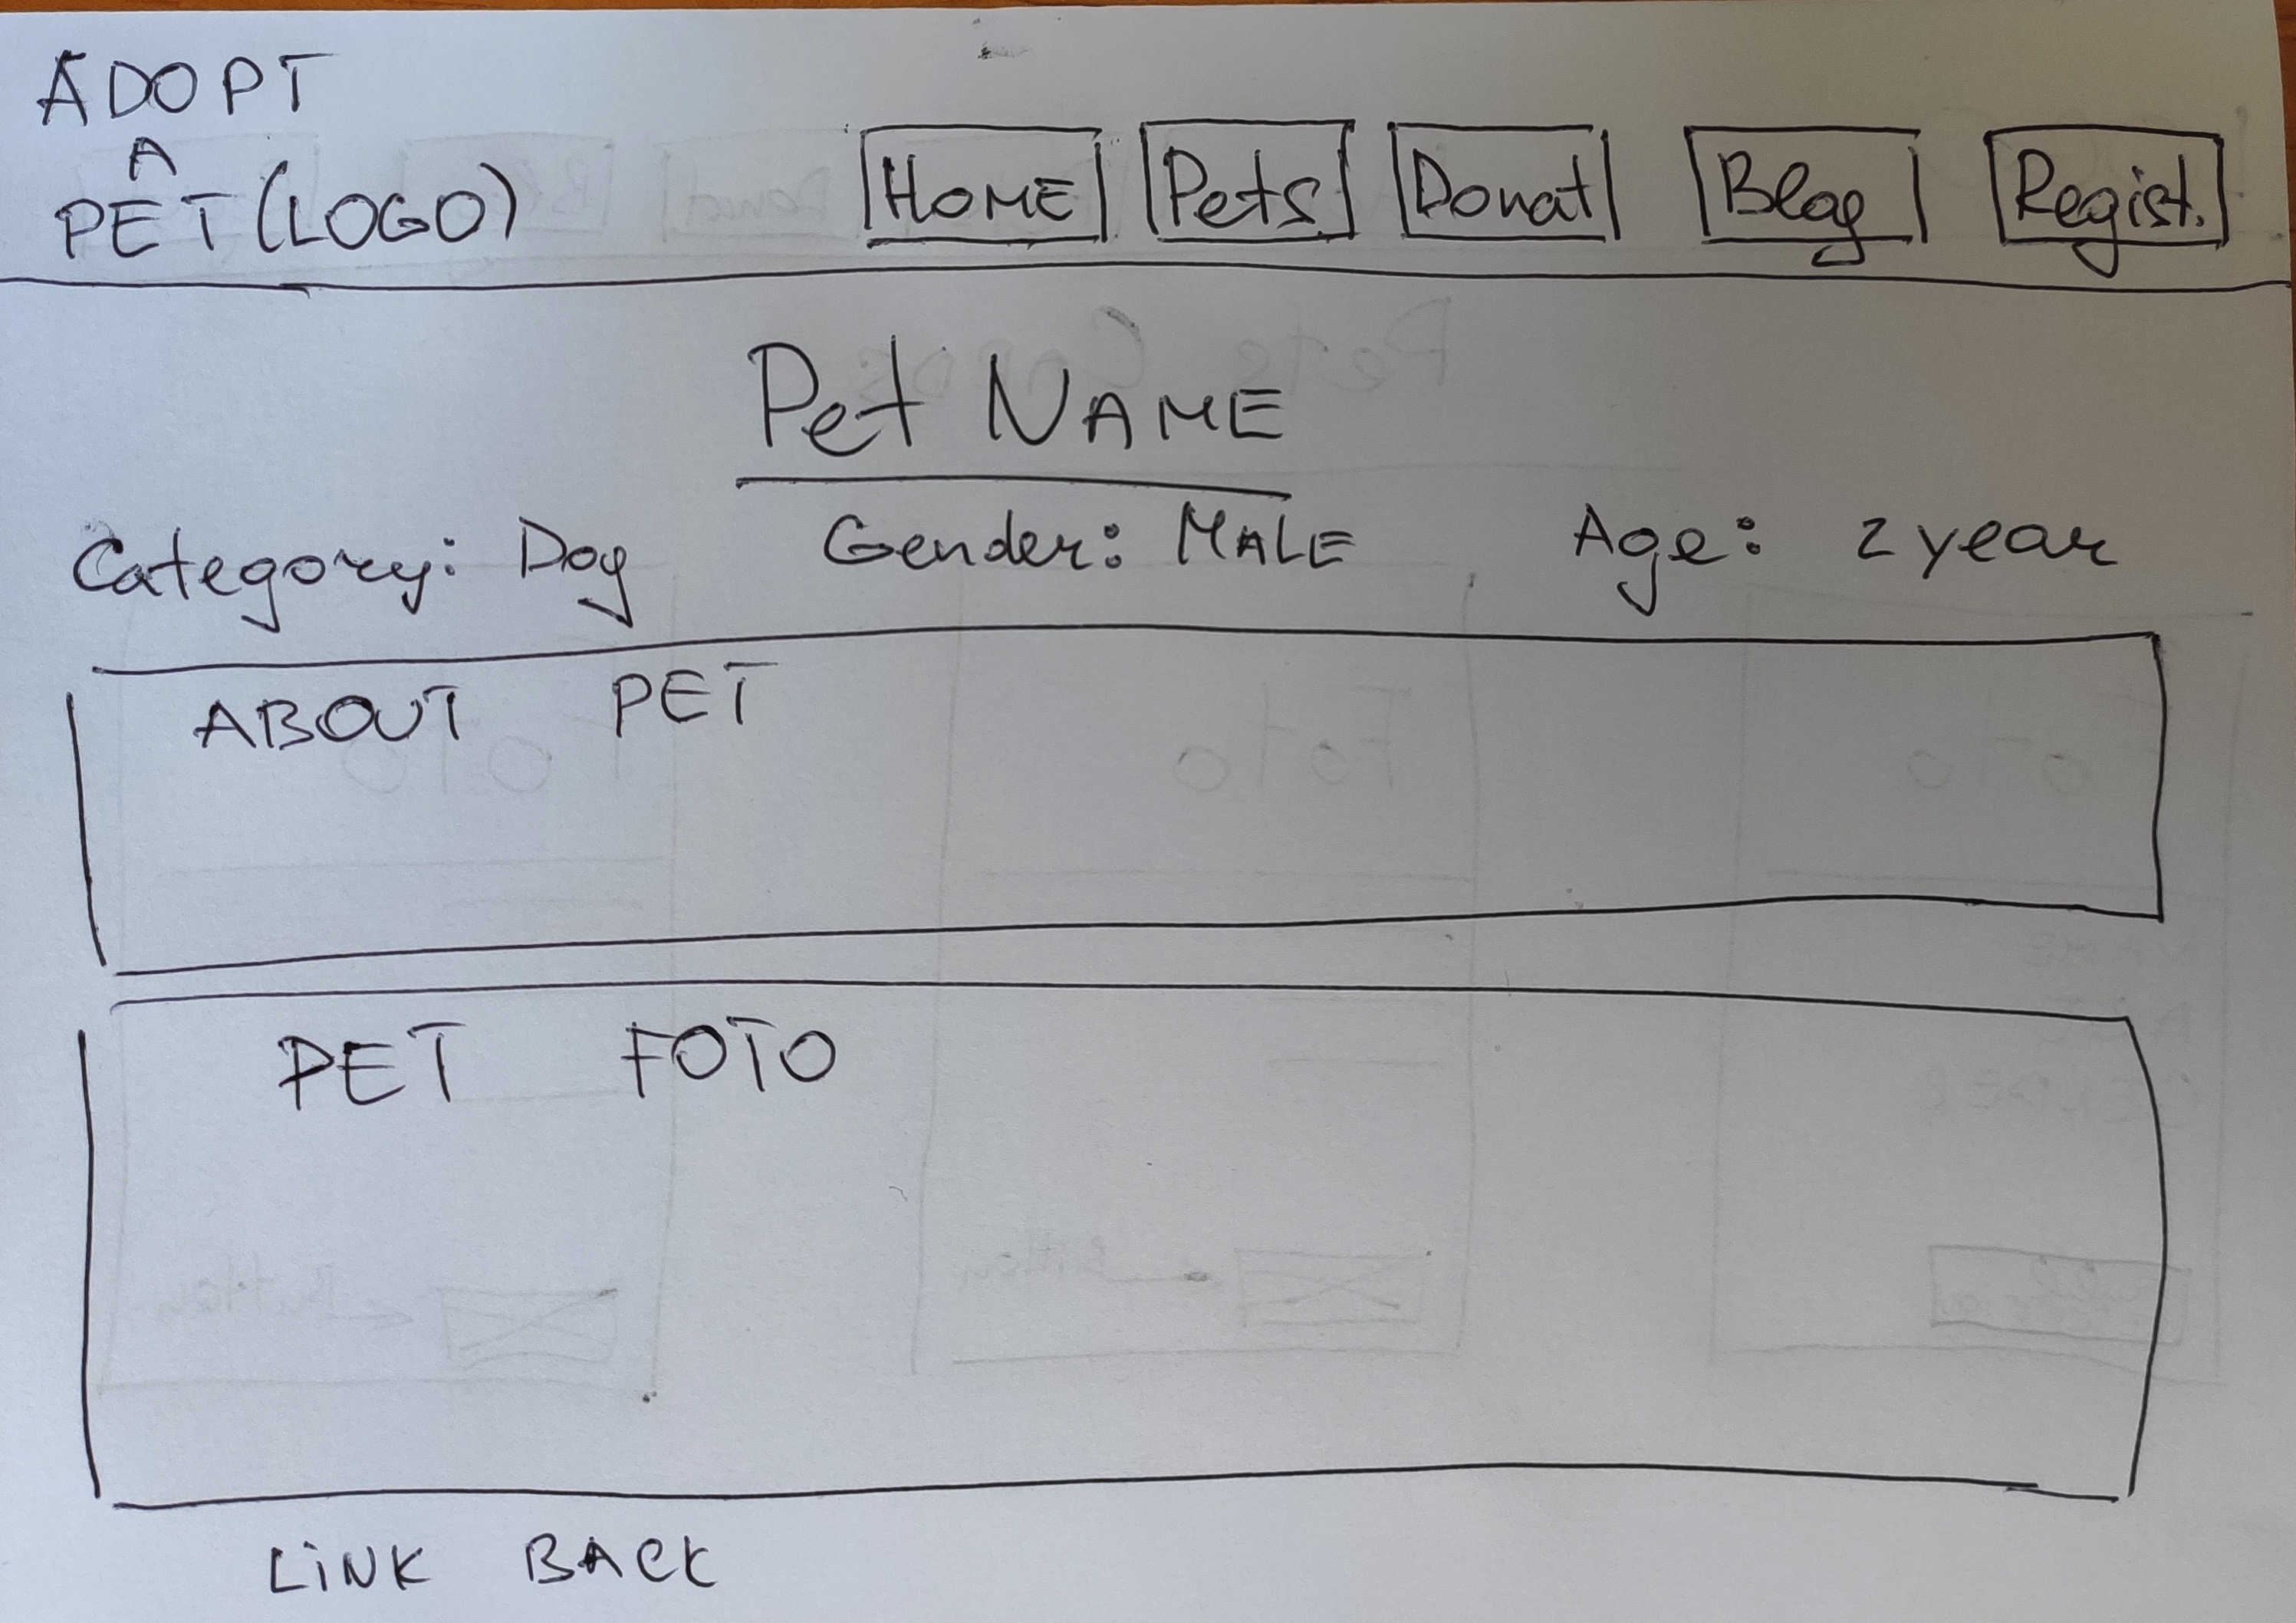 ADOPT
A
PET (LOGO)
HOME Pets Donat Blog Regist.
Pet NAME
Category: Dog Gender: MALE Age: 2 year
ABOUT PET
PET FOTO
LINK BACK